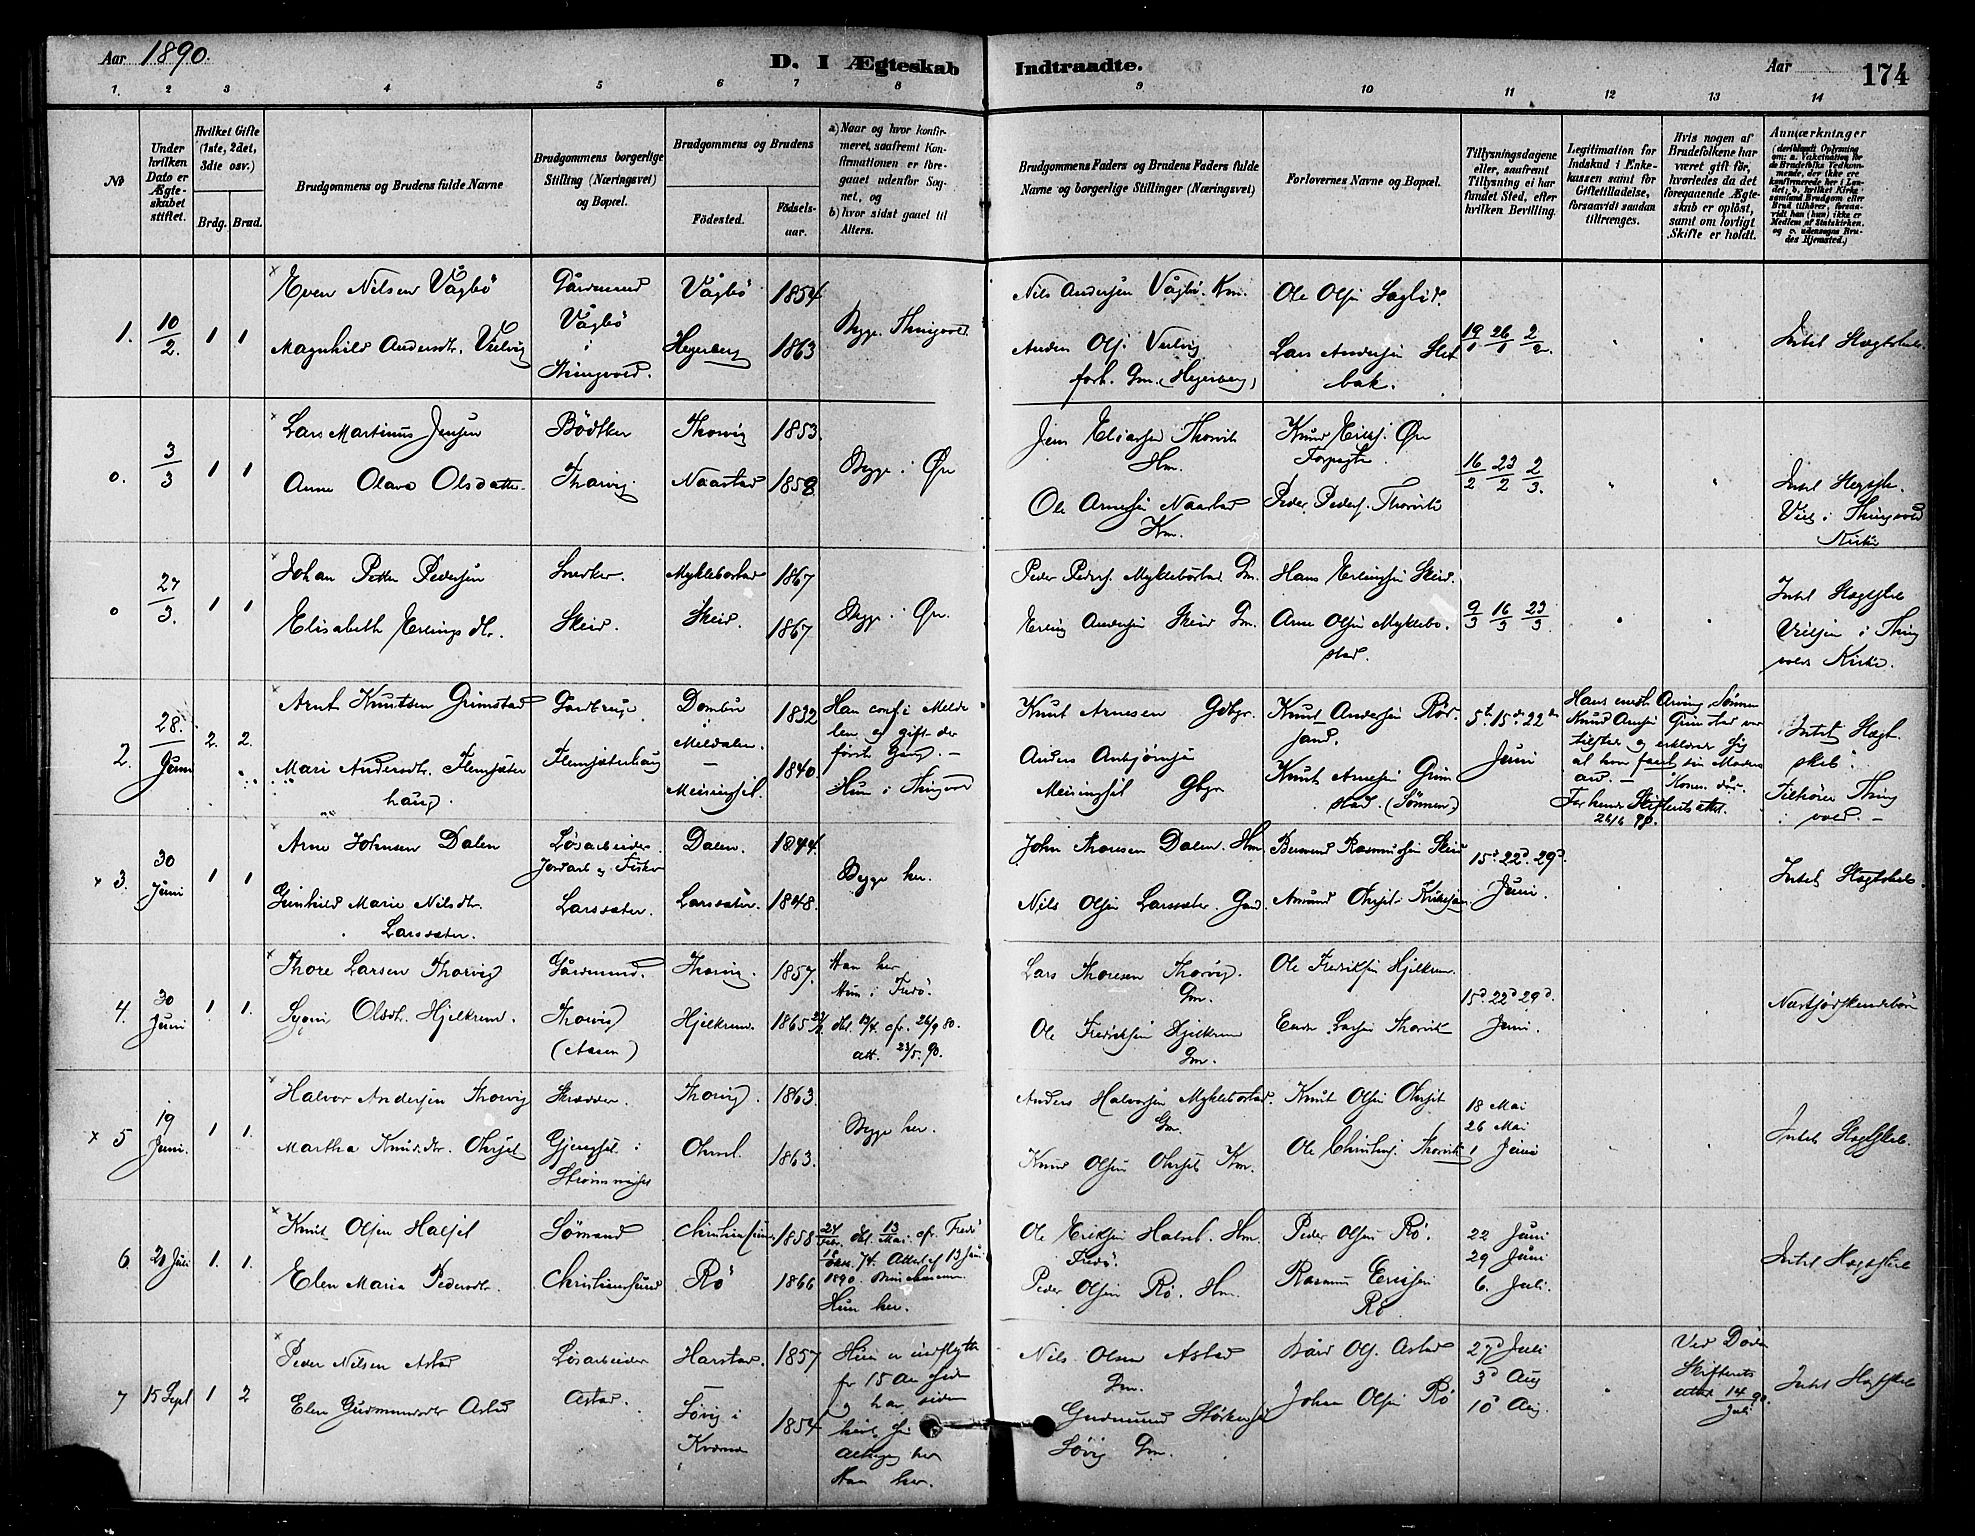 Aar 1890.
D. I Ægteskab Indtraadte.
Aar 174
1. 2 3 4 5 6 7 8 9 10 11 12 13 14
No
Under hvilken Dato er Ægteskabet stiftet.
Hvilket Gifte (1ste, 2det, 3die osv.)
Brdg. Brud.
Brudgommens og Brudens fulde Navne
Brudgommens borgerlige Stilling (Næringsvei) og Bopæl.
Brudgommens og Brudens
Födested.
Födselsaar.
a) Naar og hvor konfirmeret, saafremt Konfirmationen er foregaaet udenfor Sognet, og
b) hvor sidst gaaet til Alters.
Brudgommens Faders og Brudens Faders fulde Navne og borgerlige Stillinger (Næringsvei)
Forlovernes Navne og Bopæl.
Tillysningsdagene eller, saafremt Tillysning ei har fundet Sted, efter hvilken Bevilling.
Legitimation for Indskud i Enkekassen samt for Giftetilladelse, forsaavidt saadan tiltrænges.
Hvis nogen af Brudefolkene har været gift för, hvorledes da det foregaaende Ægteskab er oplöst, samt om lovligt Skifte er holdt.
Anmærkninger
1. 10/2. 1 1
Even Nilsen Vågbö
Magnhild Andersdtr. Veelvig
Gårdmand Vågbö i Thingvold.
Vågbö 1854
Heyerberg 1863
Begge Thingvold
Nils Andersen Vågbö. Km.
Anders Ols. Veelvig
forh. Gm. (Heyerberg)
Ole Olsen
Lars Andersen Sletbak.
19/1 26/1 2/2.
Intet Slægtskab.
0. 3/3 1 1
Lars Martinus Jensen
Anne Olava Olsdatter
Bödker
Thorvig
Thorvig 1853
Naastad 1858
Begge i Øre
Jens Eliassen Thorvik
Hm.
Ole Arnesen Naastad
Km.
Knud Ericks. Øre
Forpagter
Peder Peders. Thorvik
16/2 23/2 2/3.
Intet Slegtsk.
Viet i Thingvold
Kirke
0 27/3. 1 1
Johan Petter Pedersen
Elisabeth Erlingsdtr.
Snedker.
Skeid.
Myklebostad 1867
Skeid. 1867
Begge i Øre.
Peder Peders. Myklebostad Gm.
Erling Andersen Skeid Gm.
Hans Erlingsen Skeid.
Arne Olsen Myklebostad.
9/3 16/3 23/3.
Intet Slægtskab
Vielsen i Thingvold Kirke.
2. 28. Juni 2. 2.
Arnt Knutsen Grimstad
Mari Andersdtr. Flemsæterhaug.
Gardbruger
Flemsæterhaug
Dombu i Meldalen. 1832
Meisingset. 1840
Han conf. i Meldalen og gift der første Gang. –
Hun i Thingvold
Knut Arnesen Gdbgr.
Anders Antsönsen
Meisingset Gbgr
Knut Andersen Rörsand.
Knut Arnesen Grimstad. (Sönnen)
5te 15de 22de
Juni
Hans eneste Arving Sönnen
Knud Arnesen Grimstad var
tilstede og erklærer sig
26/6 90.
Intet Slægtskab.
Tilhører Thingvold. –
x 3. 30 Juni 1 1
Arne Johnsen Dalen
Gunhild Marie Nilsdtr.
Larssæter.
Løsarbeider.
Jordarb. og Fisker
Larssæter.
Dalen. 1844.
Larssæter. 1848.
Begge her.
John Thoresen Dalen. Hm.
Nils Olsen Larssæter. Gmd.
Bersvend Rasmussen Skeid
Amund Ohrset
15de 22de 29de
Juni.
Intet Slægtskab.
4. 30 Juni 1. 1.
Thore Larsen Thorvig
Olsdtr. Hjelkrem.
Gårdmand.
Thorvig
(Aasen)
Thorvig. 1857.
Hjelkrem. 1865
Han her
Hun i Fredö.
att. 23/5. 90.
Lars Thoresen Thorvig.
Gm.
Ole Fredriksen Hjelkrem
Gm.
Ole Fredriksen Hjelkrem.
Ender Larsen Thorvik
15de 22de 29de.
Juni.
Næstsødskendebörn
x 5 19 Juni. 1 1.
Halvor Andersen Thorvig
Martha Knudsdtr. Ohrset
Skrædder.
Gjengset i
Strömmnæset
Thorvig. 1863.
Ohrset. 1863.
Begge her.
Anders Halvorsen Myklebostad.
Gm.
Knud Olsen Ohrset Km.
Knut Olsen Ohrset
Ole Christens. Thorvik
18 Mai
26 Mai
1 Juni
Intet Slægtskab.
6. 20 Juli 1. 1.
Knut Olsen Halset
Elen Maria Pedersdtr.
Sømand
Christiansund
Christiansund 1858
Rö 1866
1890.
Hun her.
Ole Eriksen Halset. Hm.
Fredö.
Peder Olsen Rö. Hm.
Peder Olsen Rö.
Rasmus Ericksen
Rö
22 Juni
29 Juni
6. Juli.
Intet Slægtskab
7 15 Sept 1 2
Peder Nilsen Astad
Elen Gudmundsdtr Astad
Løsarbeider
Astad.
Harstad. 1857
Sövig i Kværnæs 1854
Hun er indflyttet
for 15 Aar siden
og har siden
Altergang her
Han her.
Nils Olsen Astad
Gm.
Gudmund Størkersen
Sövig Gm.
Bård Ols. Astad
Johan Olsen Rö
27de Juli
3de Aug
10de Aug.
Ved Döden
Skifterets
attest 14/Juli 90.
Intet Slægtskab